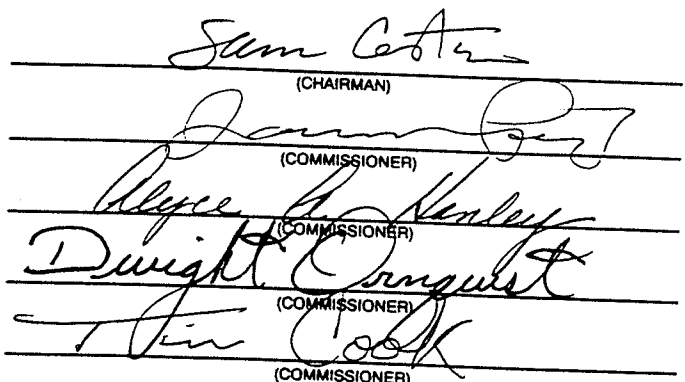 Sam
(CHAIRMAN)
(COMMISSIONER)
Alyce A. Hanley
(COMMISSIONER)
Dwight Ornquist
(COMMISSIONER)
Tim Cook
(COMMISSIONER)